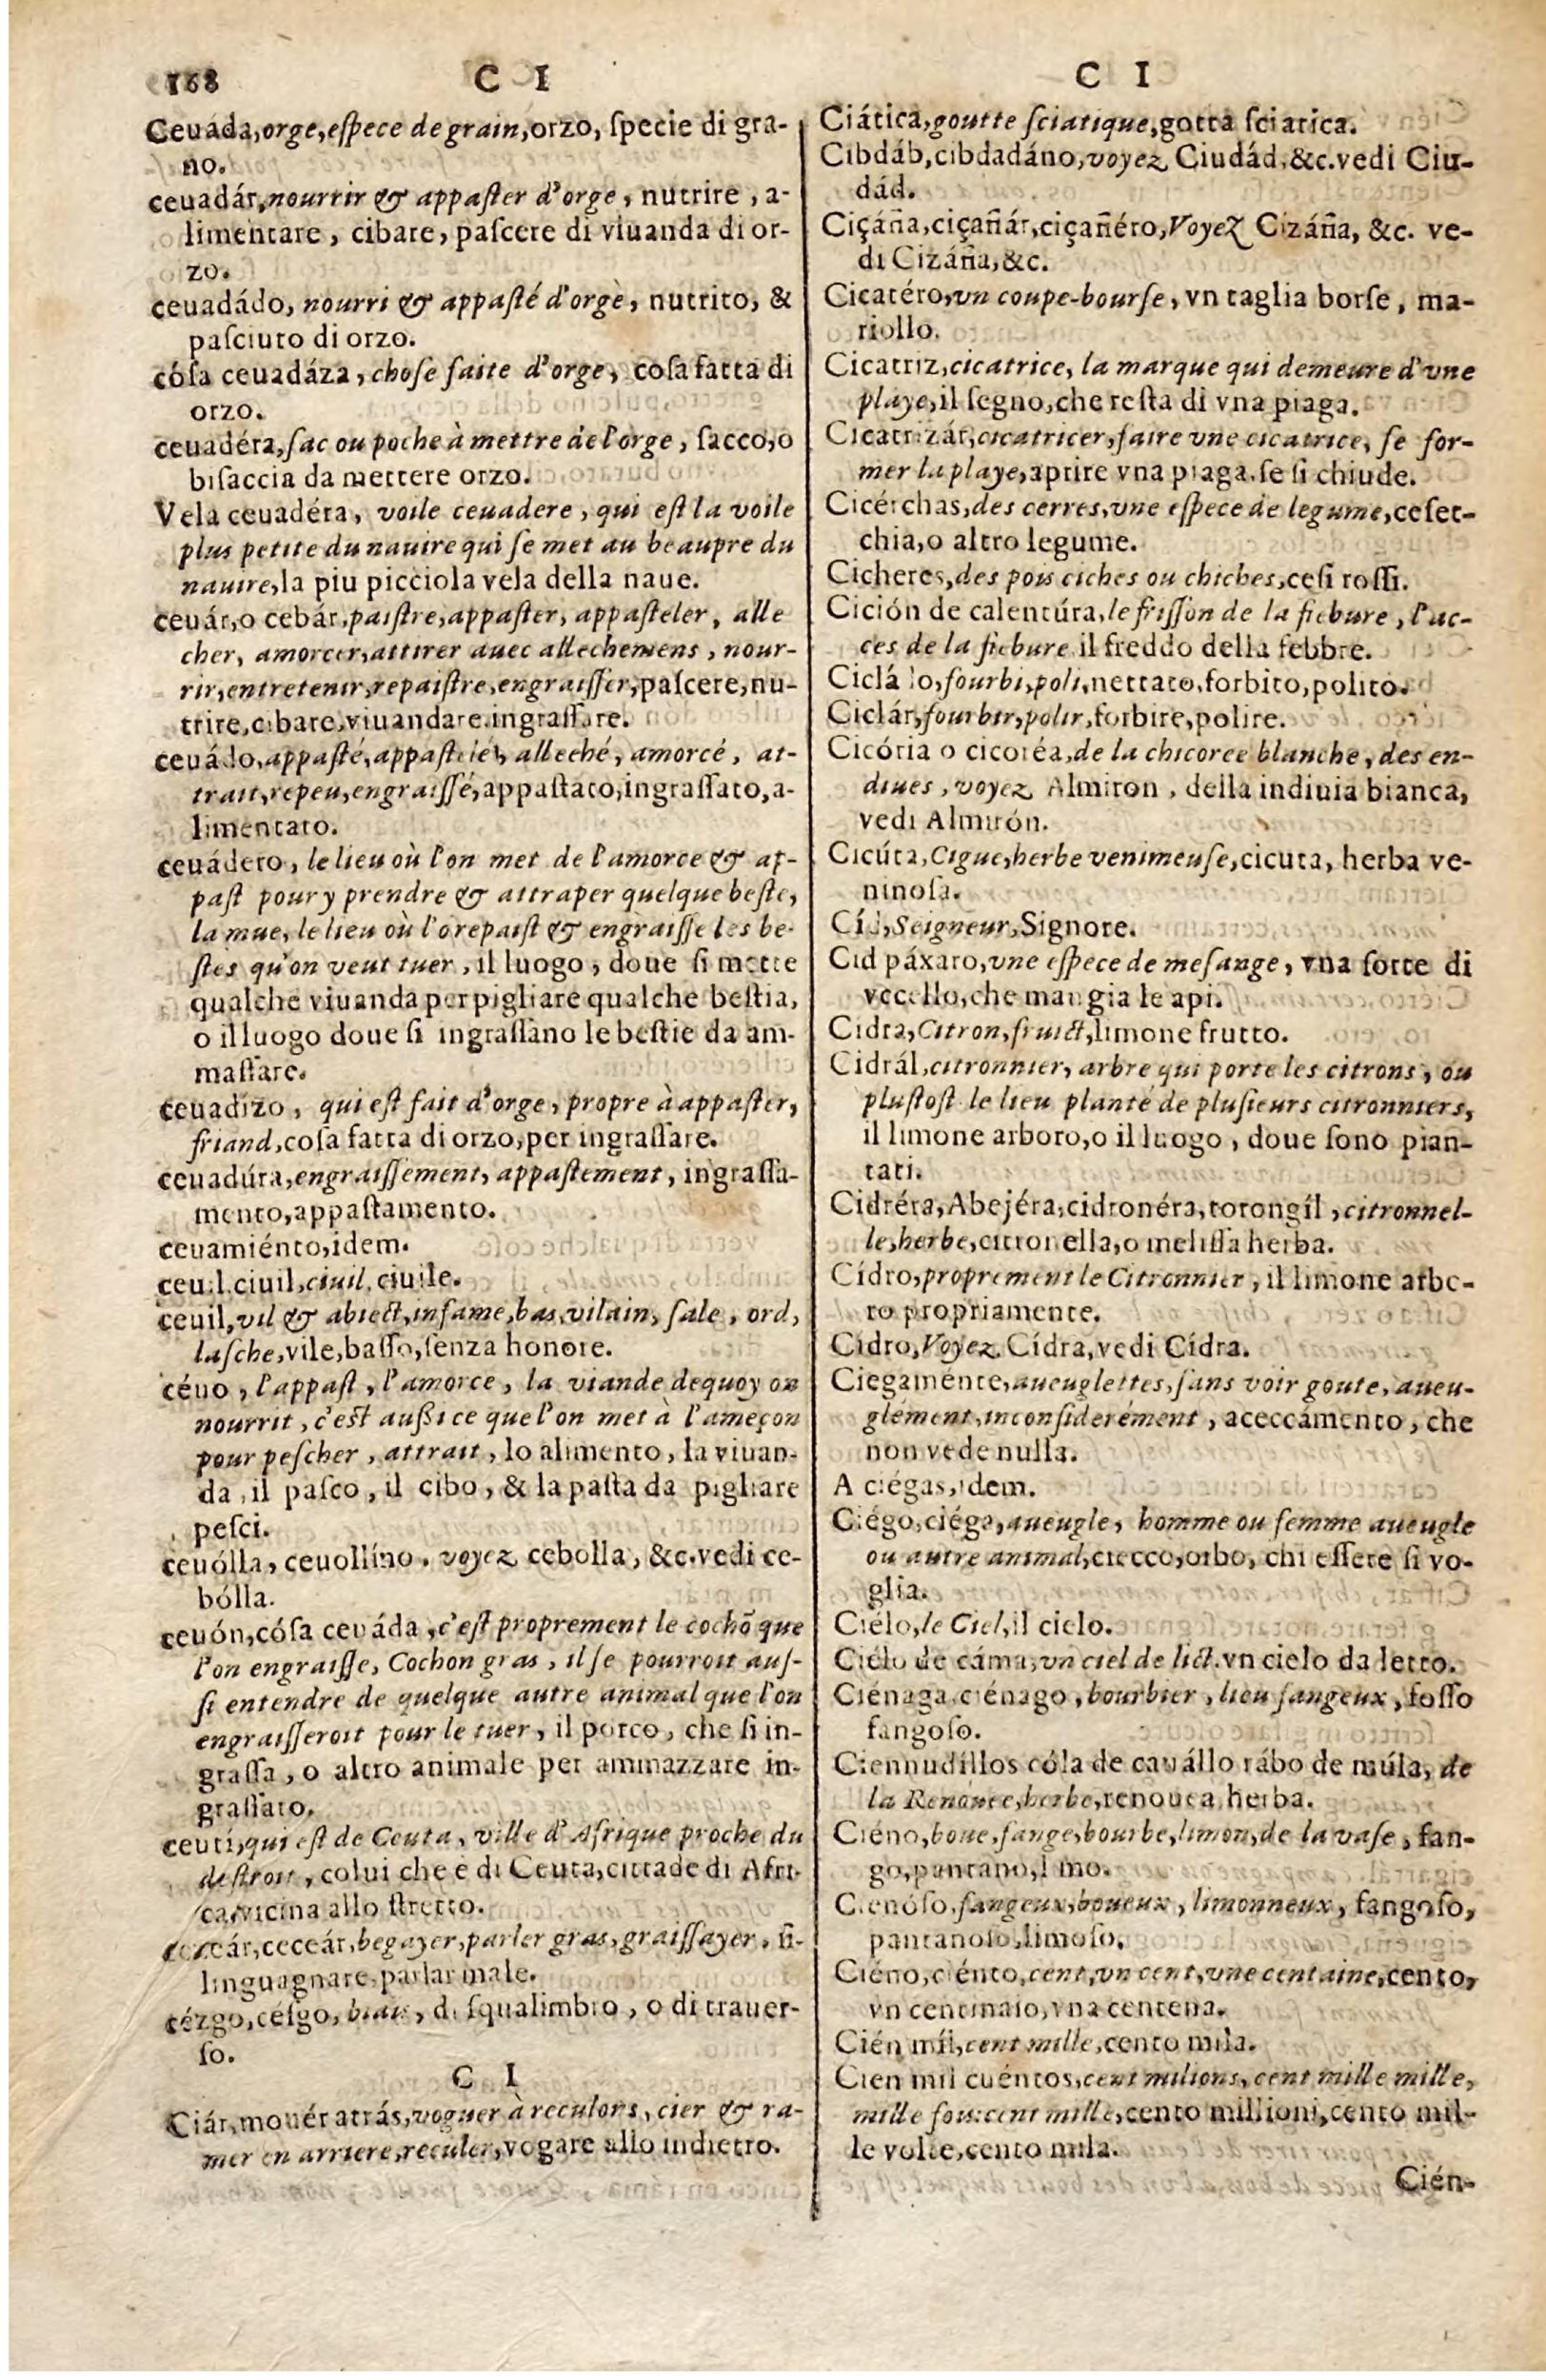 168 C I
Ceuáda, orge, eſpece de grain, orzo, ſpecie di gra-
no.
ceuadár, nourrir & appaſter d'orge, nutrire, a-
limentare, cibare, paſcere di viuanda di or-
zo.
ceuadádo, nourri & appaſté d'orge, nutrito, &
paſciuto di orzo.
cóſa ceuadáza, choſe faite d'orge, coſa fatta di
orzo.
ceuadéra, ſac ou poche à mettre de l'orge, ſacco, o
biſaccia da mettere orzo.
Vela ceuadéra, voile ceuadere, qui eſt la voile
plus petite du nauire qui ſe met au beaupre du
nauire, la piu picciola vela della naue.
ceuár, o cebár, paiſtre, appaſter, appaſteler, alle
cher, amorcer, attirer auec allechemens, nour-
rir, entretenir, repaiſtre, engraiſſer, paſcere, nu-
trire, cibare, viuandare, ingraſſare.
ceuádo, appaſté, appaſtelé, alleché, amorcé, at-
trait, repeu, engraiſſé, appaſtato, ingraſſato, a-
limentato.
ceuádero, le lieu où l'on met de l'amorce & ap-
paſt pour y prendre & attraper quelque beſte,
la mue, le lieu où l'õ repaiſt & engraiſſe les be-
ſtes qu'on veut tuer, il luogo, doue ſi mette
qualche viuanda per pigliare qualche beſtia,
o il luogo doue ſi ingraſſano le beſtie da am-
maſſare.
ceuadizo, qui eſt fait d'orge, propre à appaſter,
friand, coſa fatta di orzo, per ingraſſare.
ceuadúra, engraiſſement, appaſtement, ingraſſa-
mento, appaſtamento.
ceuamiénto, idem.
ceuil. ciuil, ciuil, ciuile.
ceuil, vil & abiect, infame, bas, vilain, ſale, ord,
laſche, vile, baſſo, ſenza honore.
céuo, l'appaſt, l'amorce, la viande dequoy on
nourrit, c'eſt auſſi ce que l'on met à l'ameçon
pour peſcher, attrait, lo alimento, la viuan-
da, il paſco, il cibo, & la paſta da pigliare
peſci.
ceuólla, ceuollíno. voyez cebolla, &c. vedi ce-
bólla.
ceuón, cóſa ceuáda, c'eſt proprement le cochõ que
l'on engraiſſe, Cochon gras, il ſe pourroit auſ-
ſi entendre de quelque autre animal que l'on
engraiſſeroit pour le tuer, il porco, che ſi in-
graſſa, o altro animale per ammazzare in-
graſſato.
ceutí, qui eſt de Ceuta, ville d'Afrique proche du
deſtroit, colui che è di Ceuta, cittade di Afri-
ca, vicina allo ſtretto.
ceár, ceceár, begayer, parler gras, graiſſayer, ſi-
linguagnare, parlar male.
cézgo, ceſgo, biais, di ſqualimbro, o di trauer-
ſo.
C I
Ciár, mouér atrás, voguer à reculons, cier & ra-
mer en arriere, reculer, vogare allo indietro.
C I
Ciática, goutte ſciatique, gotta ſciatica.
Cibdáb, cibdadáno, voyez Ciudád, &c. vedi Ciu-
dád.
Ciçáña, ciçañár, ciçañéro, Voyez Cizáña, &c. ve-
di Cizáña, &c.
Cicatéro, vn coupe-bourſe, vn taglia borſe, ma-
riollo.
Cicatriz, cicatrice, la marque qui demeure d'vne
playe, il ſegno, che reſta di vna piaga.
Cicatrizár, cicatricer, faire vne cicatrice, ſe for-
mer la playe, aprire vna piaga, ſe ſi chiude.
Cicérchas, des cerres, vne eſpece de legume, ceſer-
chia, o altro legume.
Cicheres, des pois ciches ou chiches, ceſi roſſi.
Cición de calentúra, le friſſon de la fiebure, l'ac-
ces de la fiebure il freddo della febbre.
Ciclá o, fourbi, poli, nettato, forbito, polito.
Ciclár, fourbir, polir, forbire, polire.
Cicória o cicoréa, de la chicoree blanche, des en-
diues, voyez Almiron, della indiuia bianca,
vedi Almirón.
Cicúta, Cigue, herbe venimeuſe, cicuta, herba ve-
ninoſa.
Cíd, Seigneur, Signore.
Cid páxaro, vne eſpece de meſange, vna ſorte di
vccello, che mangia le api.
Cidra, Citron, fruict, limone frutto.
Cidrál, citronnier, arbre qui porte les citrons, ou
pluſtoſt le lieu planté de pluſieurs citronniers,
il limone arboro, o il luogo, doue ſono pian-
tati.
Cidréra, Abejéra, cidronéra, torongíl, citronnel-
le, herbe, citronella, o meliſſa herba.
Cídro, proprement le Citronnier, il limone arbo-
ro propriamente.
Cídro, Voyez Cídra, vedi Cídra.
Ciegaménte, aueuglettes, ſans voir goute, aueu-
glément, inconſiderément, aceccamento, che
non vede nulla.
A ciégas, idem.
Ciégo, ciéga, aueugle, homme ou femme aueugle
ou autre animal, ciecco, oibo, chi eſſere ſi vo-
glia.
Ciélo, le Ciel, il cielo.
Ciélo de cáma, vn ciel de lict. vn cielo da letto.
Ciénaga, ciénago, bourbier, lieu fangeux, foſſo
fangoſo.
Ciennudíllos cóla de cauállo rábo de múla, de
la Renouee, herbe, renouea, herba.
Ciéno, boue, fange, bourbe, limon, de la vaſe, fan-
go, pantano, limo.
Cienóſo, fangeux, boueux, limonneux, fangoſo,
pantanoſo, limoſo.
Ciéno, ciénto, cent, vn cent, vne centaine, cento,
vn centinaio, vna centena.
Cién míl, cent mille, cento mila.
Cien mil cuéntos, cent milions, cent mille mille,
mille fois cent mille, cento millioni, cento mil-
le volte, cento mila.
Cién-